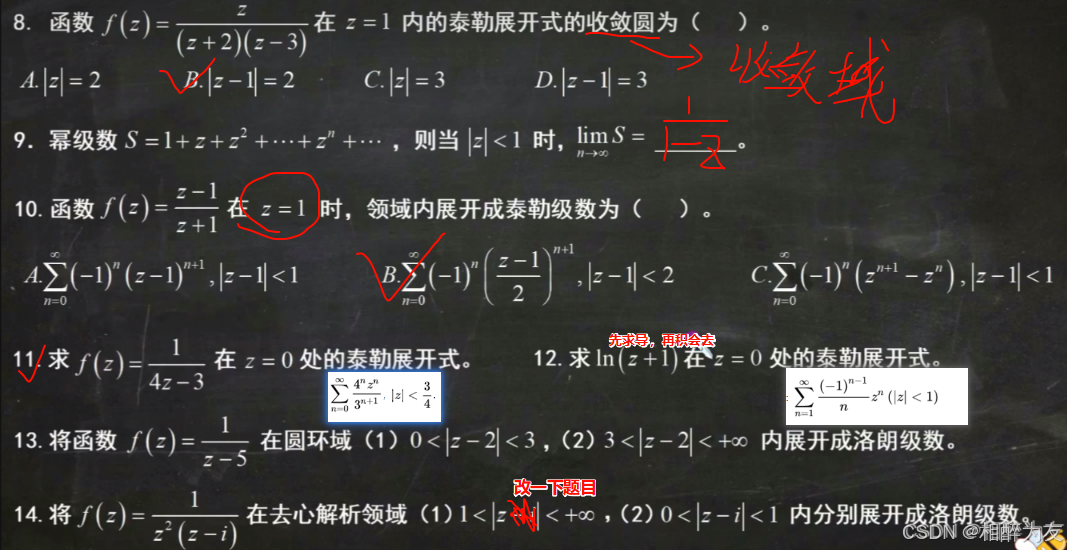 8. 函数 f(z)=z/((z+2)(z-3)) 在 z=1 内的泰勒展开式的收敛圆为（ ）。
收敛域
A.|z|=2 B.|z-1|=2 C.|z|=3 D.|z-1|=3
9. 幂级数 S=1+z+z²+⋯+zⁿ+⋯ ，则当 |z|<1 时，lim_{n→∞} S= 1/(1-z) 。
10. 函数 f(z)=(z-1)/(z+1) 在 z=1 时，领域内展开成泰勒级数为（ ）。
A.∑_{n=0}^{∞}(-1)ⁿ(z-1)ⁿ⁺¹,|z-1|<1 B.∑_{n=0}^{∞}(-1)ⁿ((z-1)/2)ⁿ⁺¹,|z-1|<2 C.∑_{n=0}^{∞}(-1)ⁿ(zⁿ⁺¹-zⁿ),|z-1|<1
先求导，再积会去
11.求 f(z)=1/(4z-3) 在 z=0 处的泰勒展开式。 12.求 ln(z+1)在 z=0 处的泰勒展开式。
∑_{n=0}^{∞} 4ⁿzⁿ/3ⁿ⁺¹, |z|<3/4. : ∑_{n=1}^{∞} (-1)ⁿ⁻¹/n zⁿ (|z|<1)
13.将函数 f(z)=1/(z-5) 在圆环域（1）0<|z-2|<3，（2）3<|z-2|<+∞ 内展开成洛朗级数。
改一下题目
14.将 f(z)=1/(z²(z-i)) 在去心解析领域（1）1<|z|<+∞，（2）0<|z-i|<1 内分别展开成洛朗级数。
CSDN @相醉为友